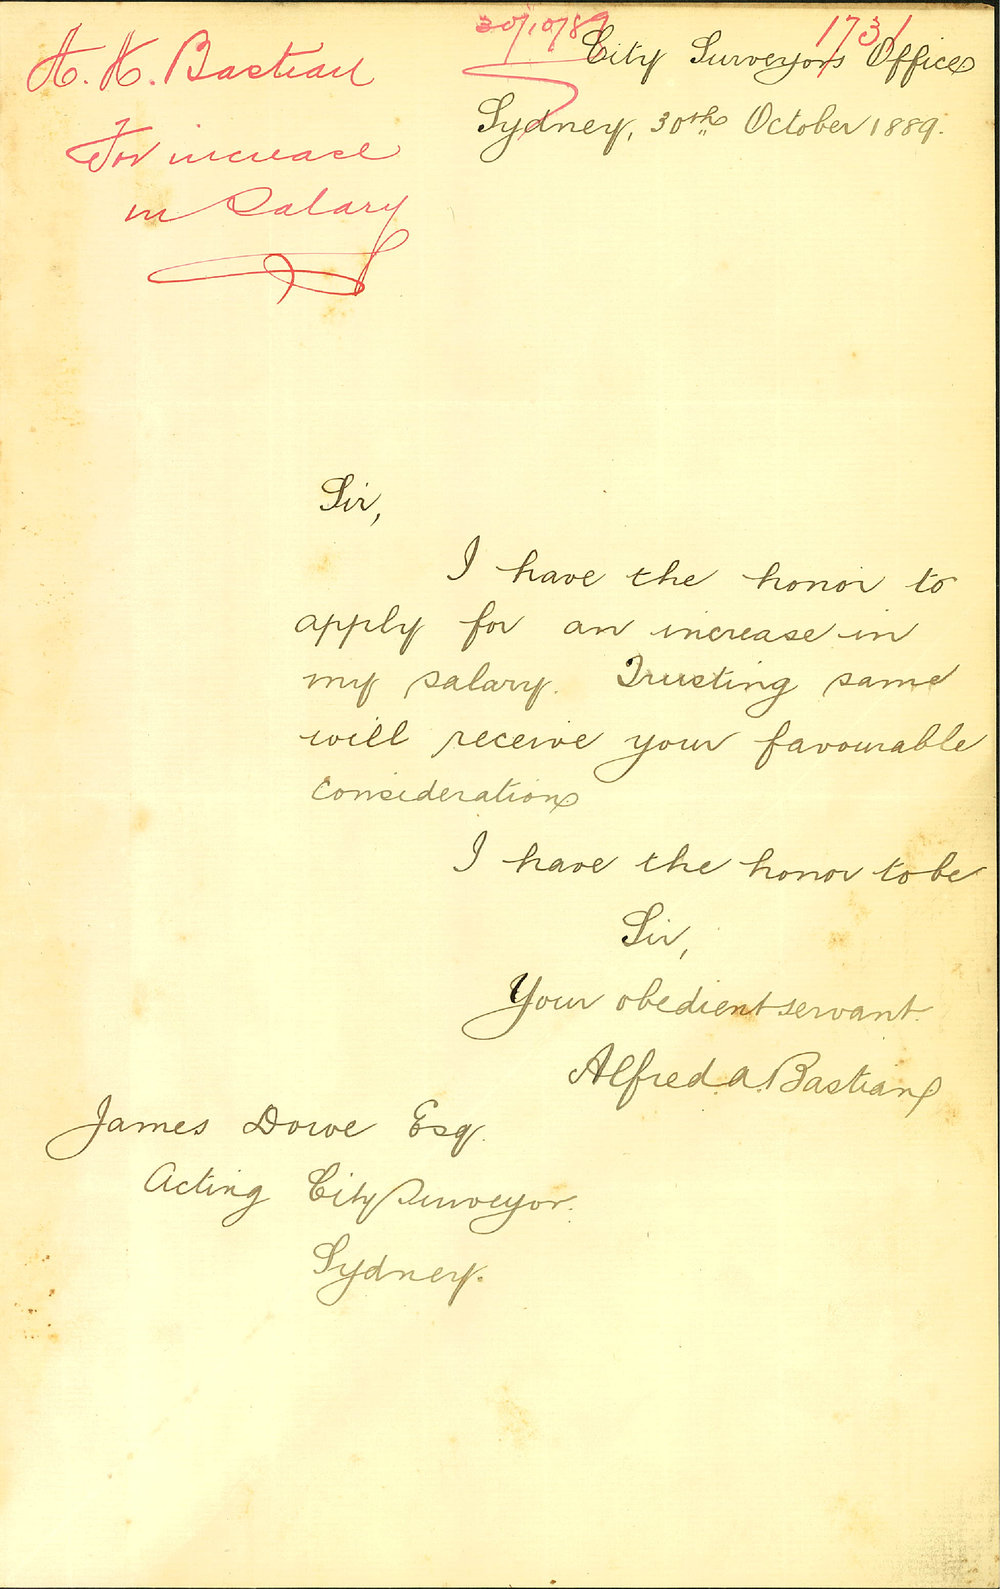 30/10/89 1731
A. A. Bastian
For increase
in Salary
City Surveyors Office
Sydney, 30th October 1889.
Sir,
I have the honor to
apply for an increase in
my salary. Trusting same
will receive your favourable
consideration
I have the honor to be
Sir,
Your obedient servant.
Alfred A. Bastian
James Dowe Esq.
Acting City Surveyor.
Sydney.